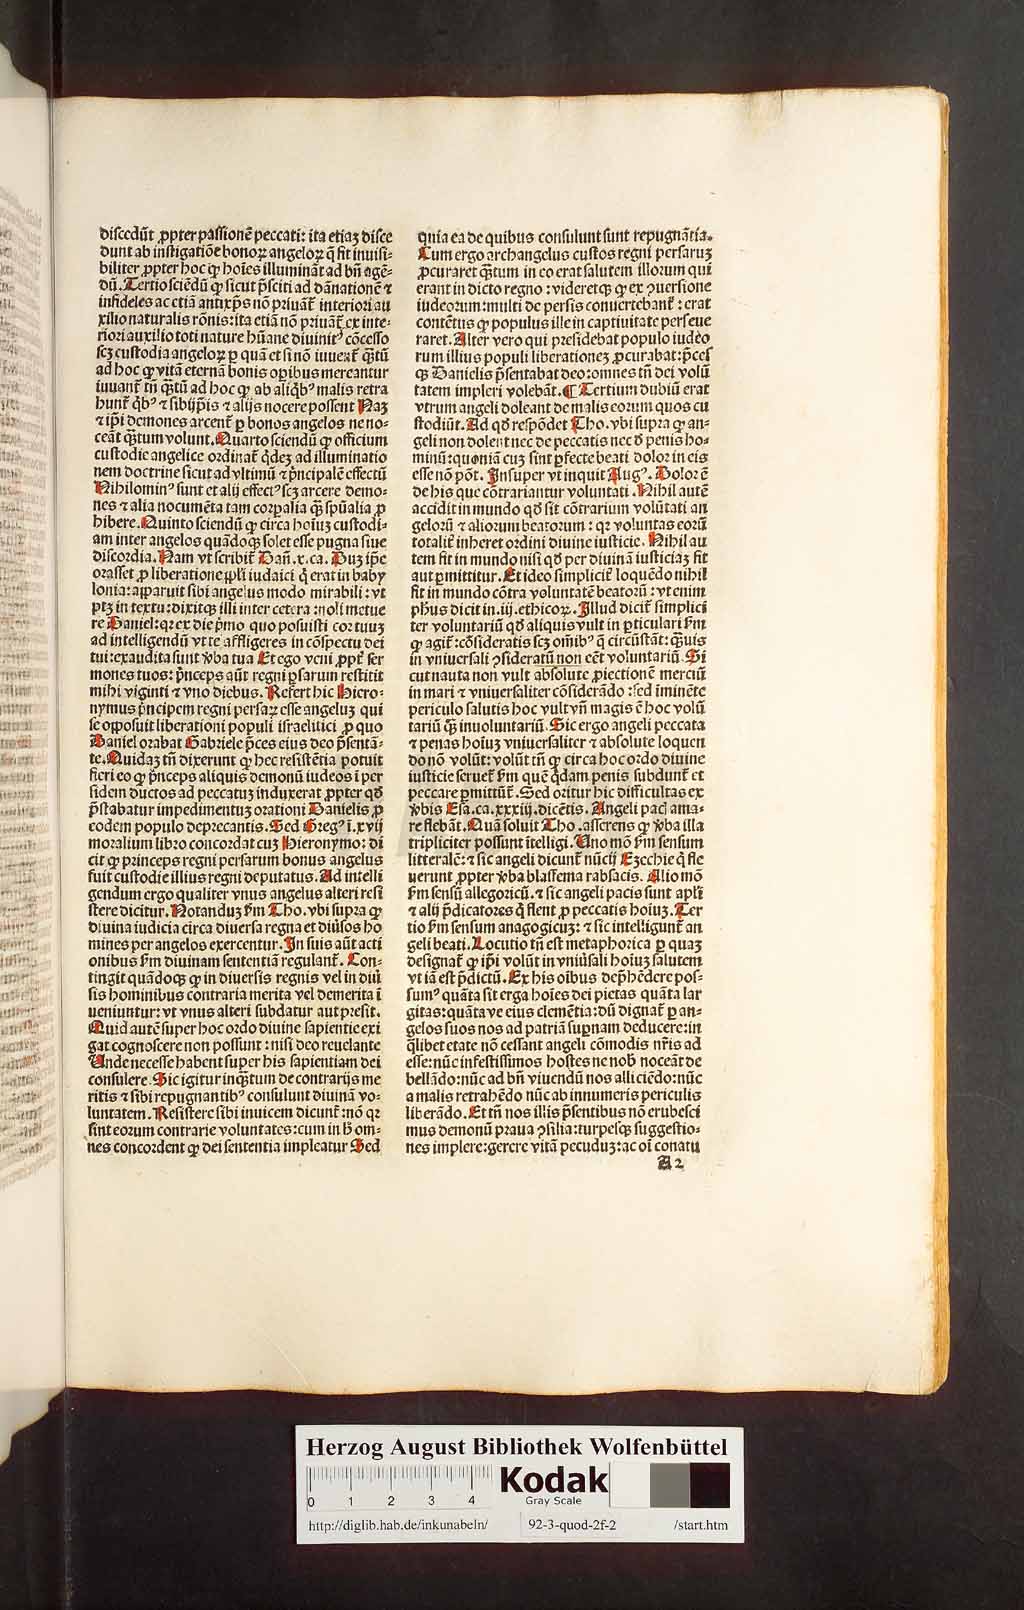 discedūt ꝓpter passionē peccati: ita etiaꝫ disce
dunt ab instigatiōe bonoꝝ angeloꝝ q̄ fit inuisi-
biliter ꝓpter hoc ꝙ hoīes illumināt ad bn̄ agē-
dū. Tertio sciēdū ꝙ sicut p̄sciti ad dānationē ⁊
infideles ac etiā antixp̄s nō priuāt̄ interiori au
xilio naturalis rōnis: ita etiā nō priuāt̄ ex inte-
riori auxilio toti nature hūane diuinitꝰ cōcesso
scꝫ custodia angeloꝝ ꝑ quā et si nō iuuent̄ q̄ꝫtū
ad hoc ꝙ vitā eternā bonis operibus mereantur
iuuant̄ tn̄ q̄ꝫtū ad hoc ꝙ ab aliqbꝰ malis retra
hunt̄ qbꝰ ⁊ sibijp̄is ⁊ alijs nocere possent Naꝫ
⁊ ip̄i demones arcent̄ ꝑ bonos angelos ne no-
ceāt q̄ꝫtum volunt. Quarto sciendū ꝙ officium
custodie angelice ordinat̄ qdeꝫ ad illuminatio
nem doctrine sicut ad vltimū ⁊ p̄ncipalē effectū
Nihilominꝰ sunt et alij effectꝰ scꝫ arcere demo-
nes ⁊ alia nocumēta tam corꝑalia q̄ꝫ sp̄ualia ꝓ
hibere. Quinto sciendū ꝙ circa hoīuꝫ custodi-
am inter angelos quādoqꝫ solet esse pugna siue
discordia. Nam vt scribit̄ Dañ.x.ca. Puꝫ ip̄e
orasset ꝓ liberatione ip̄li iudaici q̄ erat in baby
lonia: apparuit sibi angelus modo mirabili: vt
ptꝫ in textu: dixitqꝫ illi inter cetera: noli metue
re Daniel: qꝛ ex die p̄mo quo posuisti cor tuuꝫ
ad intelligendū vt te affligeres in cōspectu dei
tui: exaudita sunt v̄ba tua Et ego veni ꝓpt̄ ser
mones tuos: p̄nceps aūt regni ꝑsarum restitit
mihi viginti ⁊ vno diebus. Refert hic Hiero-
nymus p̄ncipem regni persaꝝ esse angeluꝫ qui
se opposuit liberationi populi israelitici ꝓ quo
Daniel orabat Gabriele p̄ces eius deo p̄sentā-
te. Quidaꝫ tn̄ dixerunt ꝙ hec resistētia potuit
fieri eo ꝙ p̄nceps aliquis demonū iudeos ī per
sidem ductos ad peccatuꝫ induxerat ꝓpter qd̄
p̄stabatur impedimentuꝫ orationi Danielis ꝓ
eodem populo deprecantis. Sed Gregꝰ ī.xvij
moralium libro concordat cuꝫ Hieronymo: di
cit ꝙ princeps regni persarum bonus angelus
fuit custodie illius regni deputatus. Ad intelli
gendum ergo qualiter vnus angelus alteri resi
stere dicitur. Notanduꝫ ẜm Tho. vbi supra ꝙ
diuina iudicia circa diuersa regna et diu̇sos ho
mines per angelos exercentur. In suis aūt acti
onibus ẜm diuinam sententiā regulant̄. Con-
tingit quādoqꝫ ꝙ in diuersis regnis vel in diu̇
sis hominibus contraria merita vel demerita ī
ueniuntur: vt vnus alteri subdatur aut presit.
Quid autē super hoc ordo diuine sapientie exi
gat cognoscere non possunt: nisi deo reuelante
Unde necesse habent super his sapientiam dei
consulere. Sic igitur inq̄ꝫtum de contrarijs me
ritis ⁊ sibi repugnantibꝰ consulunt diuinā vo-
luntatem. Resistere sibi inuicem dicunt̄: nō qꝛ
sint eorum contrarie voluntates: cum in h̄ om-
nes concordent ꝙ dei sententia impleatur Sed
quia ea de quibus consulunt sunt repugnātia.
Cum ergo archangelus custos regni persaruꝫ
ꝓcuraret q̄ꝫtum in eo erat salutem illorum qui
erant in dicto regno: videretqꝫ ꝙ ex ꝯuersione
iudeorum: multi de persis conuertebant̄: erat
contētus ꝙ populus ille in captiuitate perseue
raret. Alter vero qui presidebat populo iudeo
rum illius populi liberationeꝫ ꝓcurabat: p̄ces
qꝫ Danielis p̄sentabat deo: omnes tn̄ dei volū
tatem impleri volebāt. ¶ Tertium dubiū erat
vtrum angeli doleant de malis eorum quos cu
stodiūt. Ad qd̄ respōdet Tho. vbi supra ꝙ an-
geli non dolent nec de peccatis nec d̄ penis ho-
minū: quoniā cuꝫ sint ꝑfecte beati dolor in eis
esse nō pōt. Insuper vt inquit Augꝰ. Dolor ē
de his que cōtrariantur voluntati. Nihil autē
accidit in mundo qd̄ sit cōtrarium volūtati an
gelorū ⁊ aliorum beatorum: qꝛ voluntas eorū
totalit̄ inheret ordini diuine iusticie. Nihil au
tem fit in mundo nisi qd̄ per diuinā iusticiaꝫ fit
aut ꝑmittitur. Et ideo simplicit̄ loquēdo nihil
fit in mundo cōtra voluntatē beatorū: vt enim
ph̄us dicit in.iij.ethicoꝝ. Illud dicit̄ simplici
ter voluntariū qd̄ aliquis vult in ꝑticulari ẜm
ꝙ agit̄: cōsideratis scꝫ om̄ibꝰ q̄ circūstāt: q̄ꝫuis
in vniuersali ꝯsideratū non eēt voluntariū. Si
cut nauta non vult absolute ꝓiectionē merciū
in mari ⁊ vniuersaliter cōsiderādo: sed iminēte
periculo salutis hoc vult vn̄ magis ē hoc volū
tariū q̄ꝫ inuoluntariū. Sic ergo angeli peccata
⁊ penas hoīuꝫ vniuersaliter ⁊ absolute loquen
do nō volūt: volūt tn̄ ꝙ circa hoc ordo diuine
iusticie seruet̄ ẜm quē qdam penis subdunt̄ et
peccare ꝑmittūt̄. Sed oritur hic difficultas ex
v̄bis Esa.ca.xxxiij.dicētis. Angeli pacī ama-
re flebāt. Quā soluit Tho. asserens ꝙ v̄ba illa
tripliciter possunt ītelligi. Uno mō ẜm sensum
litteralē: ⁊ sic angeli dicunt̄ nūcij Ezechie q̄ fle
uerunt ꝓpter v̄ba blasfema rabsacis. Alio mō
ẜm sensū allegoricū. ⁊ sic angeli pacis sunt apl̄i
⁊ alij p̄dicatores q̄ flent ꝓ peccatis hoīuꝫ. Ter
tio ẜm sensum anagogicuꝫ: ⁊ sic intelligunt̄ an
geli beati. Locutio tn̄ est metaphorica ꝑ quaꝫ
designat̄ ꝙ ip̄i volūt in vniu̇sali hoīuꝫ salutem
vt iā est p̄dictū. Ex his oībus dep̄hēdere pos-
sumꝰ quāta sit erga hoīes dei pietas quāta lar
gitas: quāta ve eius clemētia: dū dignat̄ ꝑ an-
gelos suos nos ad patriā suꝑnam deducere: in
qlibet etate nō cessant angeli cōmodis nr̄is ad
esse: nūc infestissimos hostes ne nob̄ noceāt de
bellādo: nūc ad bn̄ viuendū nos alliciēdo: nūc
a malis retrahēdo nūc ab innumeris periculis
liberādo. Et tn̄ nos illis p̄sentibus nō erubesci
mus demonū praua ꝯsilia: turpesqꝫ suggestio-
nes implere: gerere vitā pecuduꝫ: ac oī conatu
A 2
Herzog August Bibliothek Wolfenbüttel
0 1 2 3 4
Kodak
Gray Scale
http://diglib.hab.de/inkunabeln/ 92-3-quod-2f-2 /start.htm